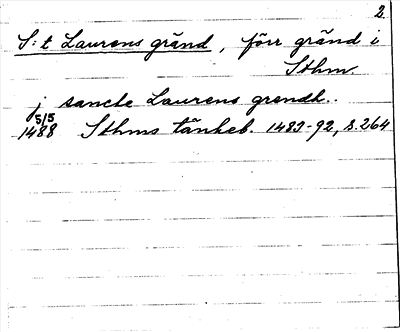 2.
S:t Laurens gränd, förr gränd i
Sthm.
j sancte Laurens grendh..
5/5
1488 Sthms tänkeb. 1483-92, s. 264